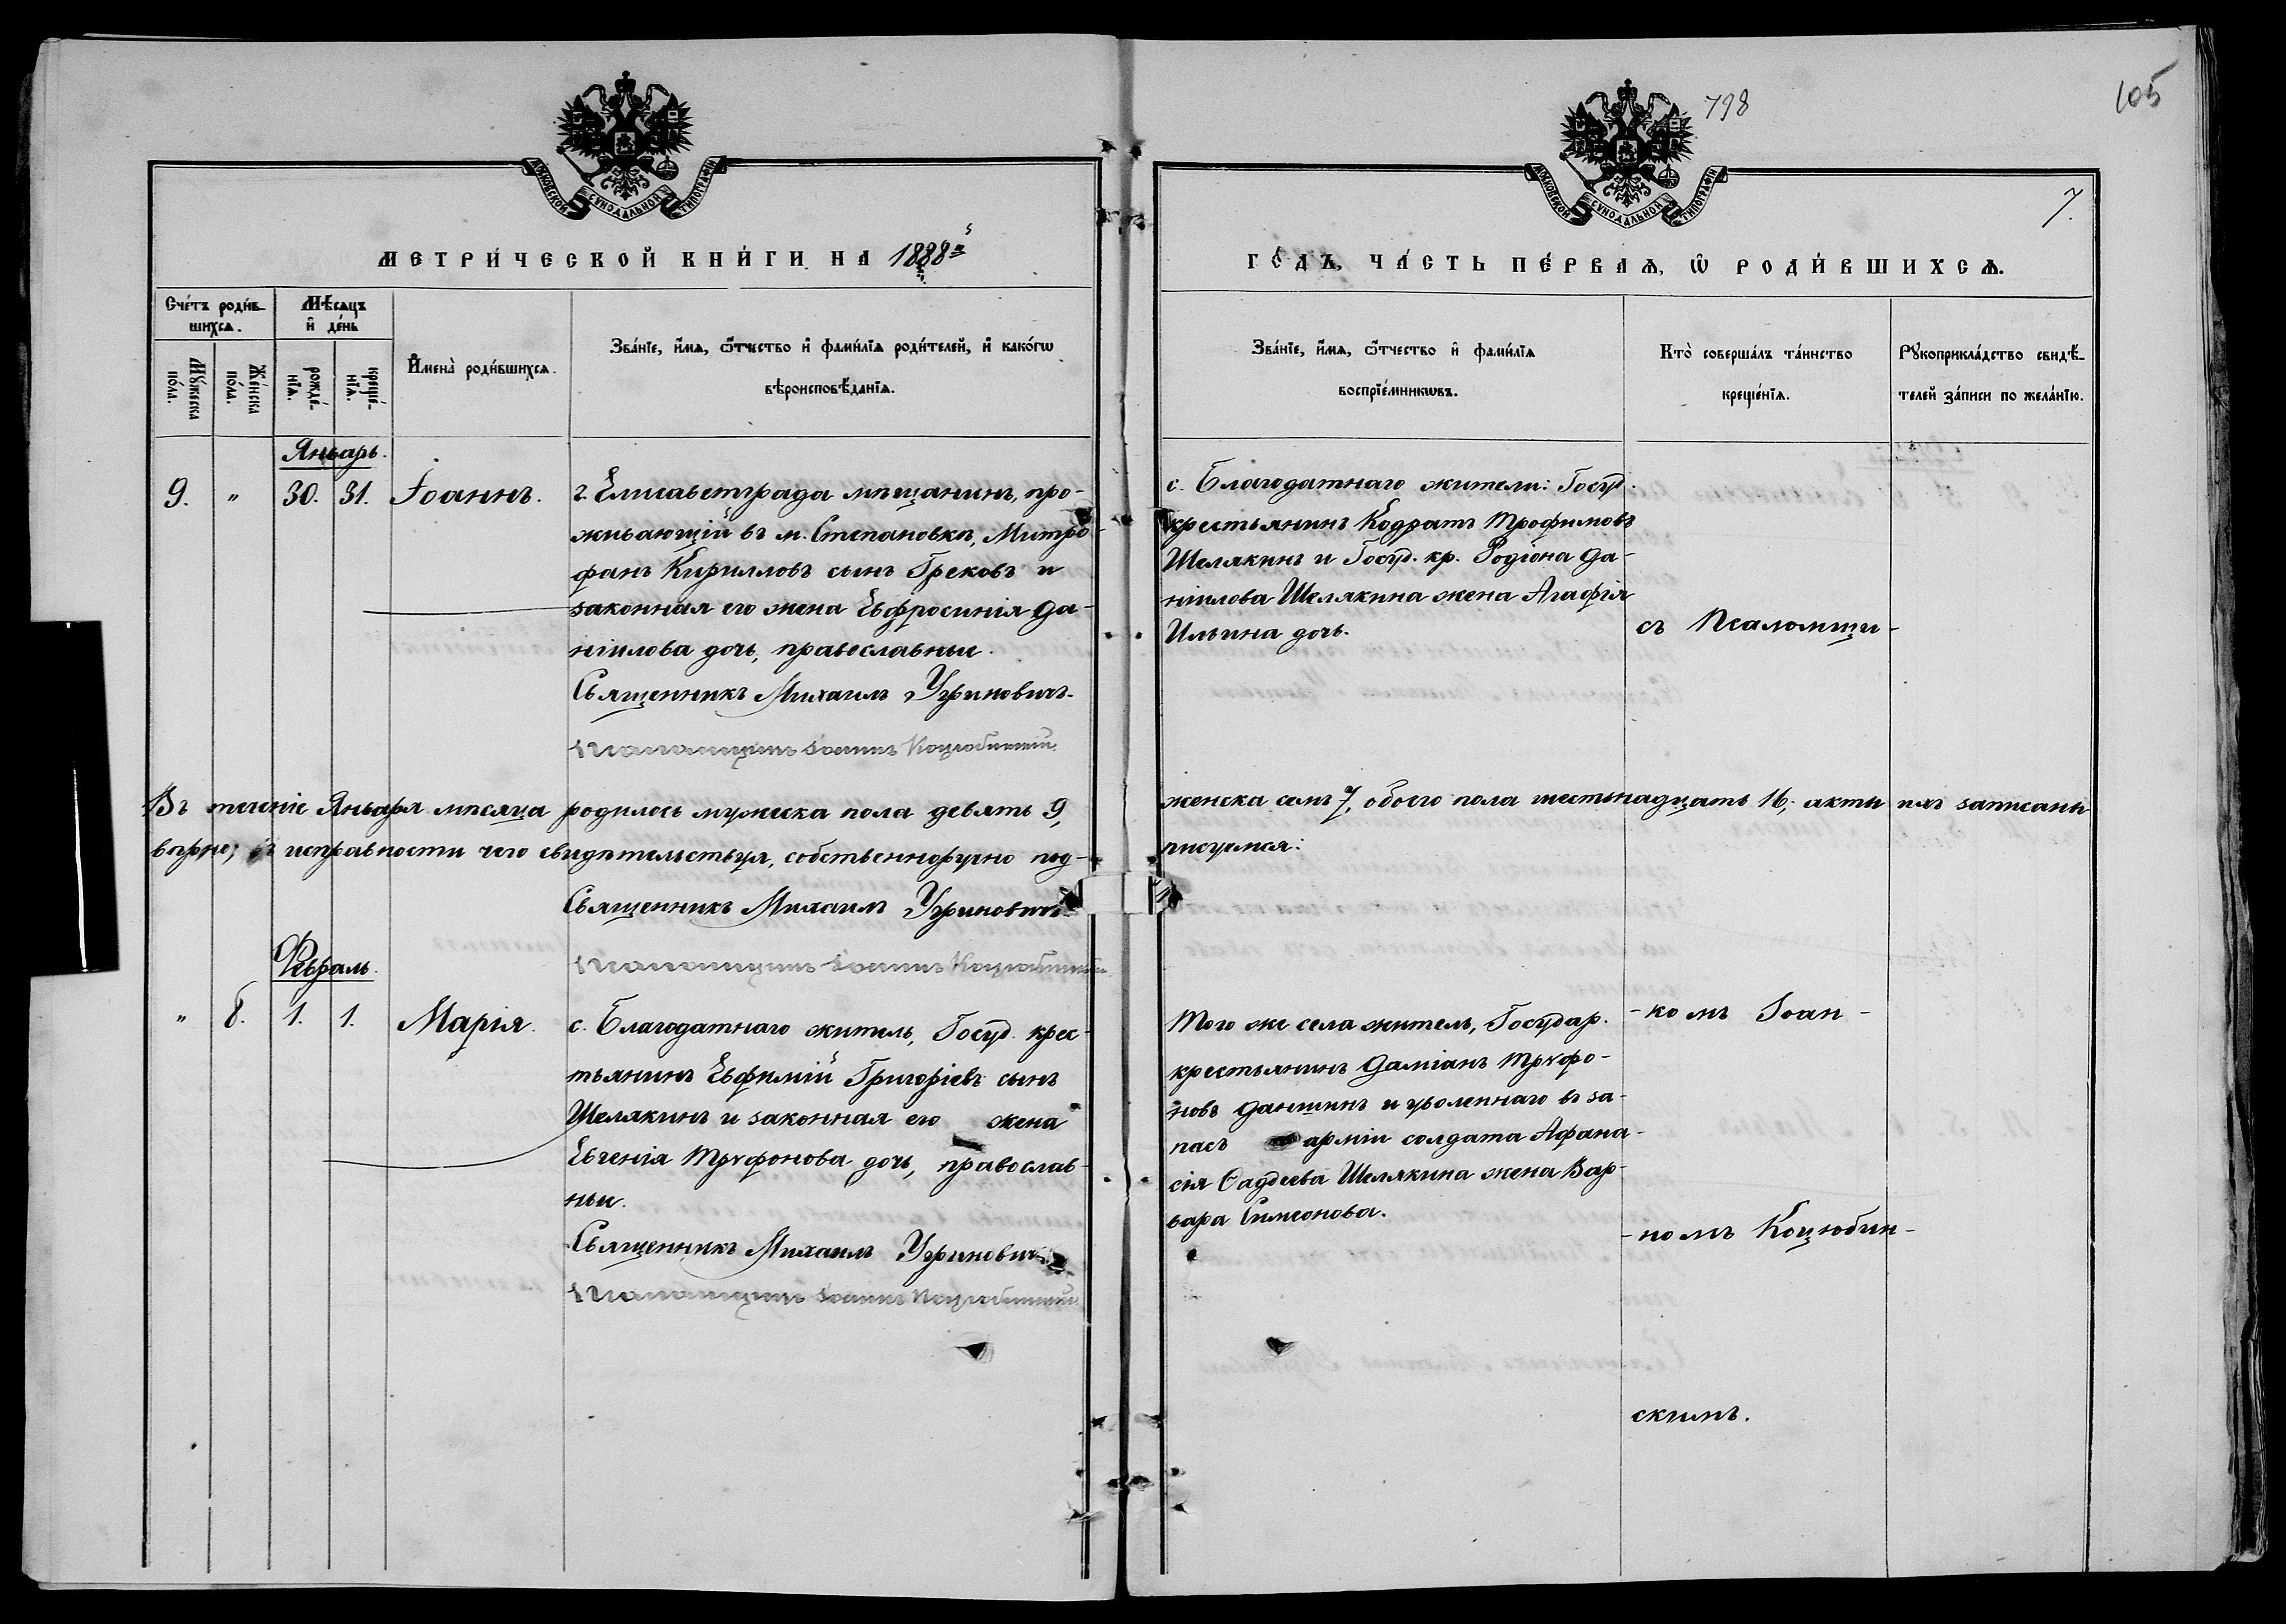 798
105
7.
МОСКОВСКОЙ СѴНОДАЛЬНОЙ ТИПОГРАФІИ
МОСКОВСКОЙ СѴНОДАЛЬНОЙ ТИПОГРАФІИ
МЕТРИ́ЧЕСКОЙ КНИ́ГИ НА 1888й
ГО́ДЪ, ЧА́СТЬ ПЕ́РВАѦ, Ѡ҆ РОДИ́ВШИХСѦ.
Сче́тъ роди́в-
шихсѧ.
Мѣ́сѧцъ
и҆ де́нь
Мꙋ́жеска
по́ла.
Же́нска
по́ла.
рожде́-
нїѧ.
креще́-
нїѧ.
И҆мена̀ роди́вшихсѧ.
Зва́нїе, и҆́мѧ, ѻ҆́тчество и҆ фами́лїѧ роди́телей, и҆ како́гѡ
вѣроисповѣ́данїѧ.
Зва́нїе, и҆́мѧ, ѻ҆́тчество и҆ фами́лїѧ
воспрїе́мникѡвъ.
Кто̀ соверша́лъ та́инство
креще́нїѧ.
Рꙋкоприкла́дство свидѣ́-
телей за́писи по жела́нїю.
Январь.
9. " 30. 31. Іоаннъ.
г. Елисаветграда мѣщанинъ, про-
живающій въ м. Степановкѣ, Митро-
фанъ Кирилловъ сынъ Грековъ и
законная его жена Евфросинія Да-
ніилова дочь, православные.
Священникъ Михаилъ Угриновичъ.
Псаломщикъ Іоаннъ Коцюбинскій.
с. Благодатнаго жители: Госуд.
крестьянинъ Кодратъ Трофимовъ
Шелякинъ и Госуд. кр. Родіона Да-
ніилова Шелякина жена Агафія
Ильина дочь.
съ Псаломщи-
Въ теченіе Января мѣсяца родилось мужеска пола девять 9,
женска семь 7, обоего пола шестьнадцать 16; акты ихъ записаны
вѣрно; въ исправности чего свидѣтельствуя, собственноручно под-
писуемся:
Священникъ Михаилъ Угриновичъ
Псаломщикъ Іоаннъ Коцюбинскій
Февраль.
" 8. 1. 1. Марія.
с. Благодатнаго житель, Госуд. крес-
тьянинъ Евфимій Григоріевъ сынъ
Шелякинъ и законная его жена
Евгенія Трѵфонова дочь, православ-
ные.
Священникъ Михаилъ Угриновичъ
Псаломщикъ Іоаннъ Коцюбинскій
Того же села житель, Государ.
крестьянинъ Даміанъ Трѵфо-
новъ Даншинъ и уволеннаго въ за-
пасъ арміи солдата Афана-
сія Ѳаддеева Шелякина жена Вар-
вара Симеонова.
-комъ Іоан-
-номъ Коцюбин-
скимъ.